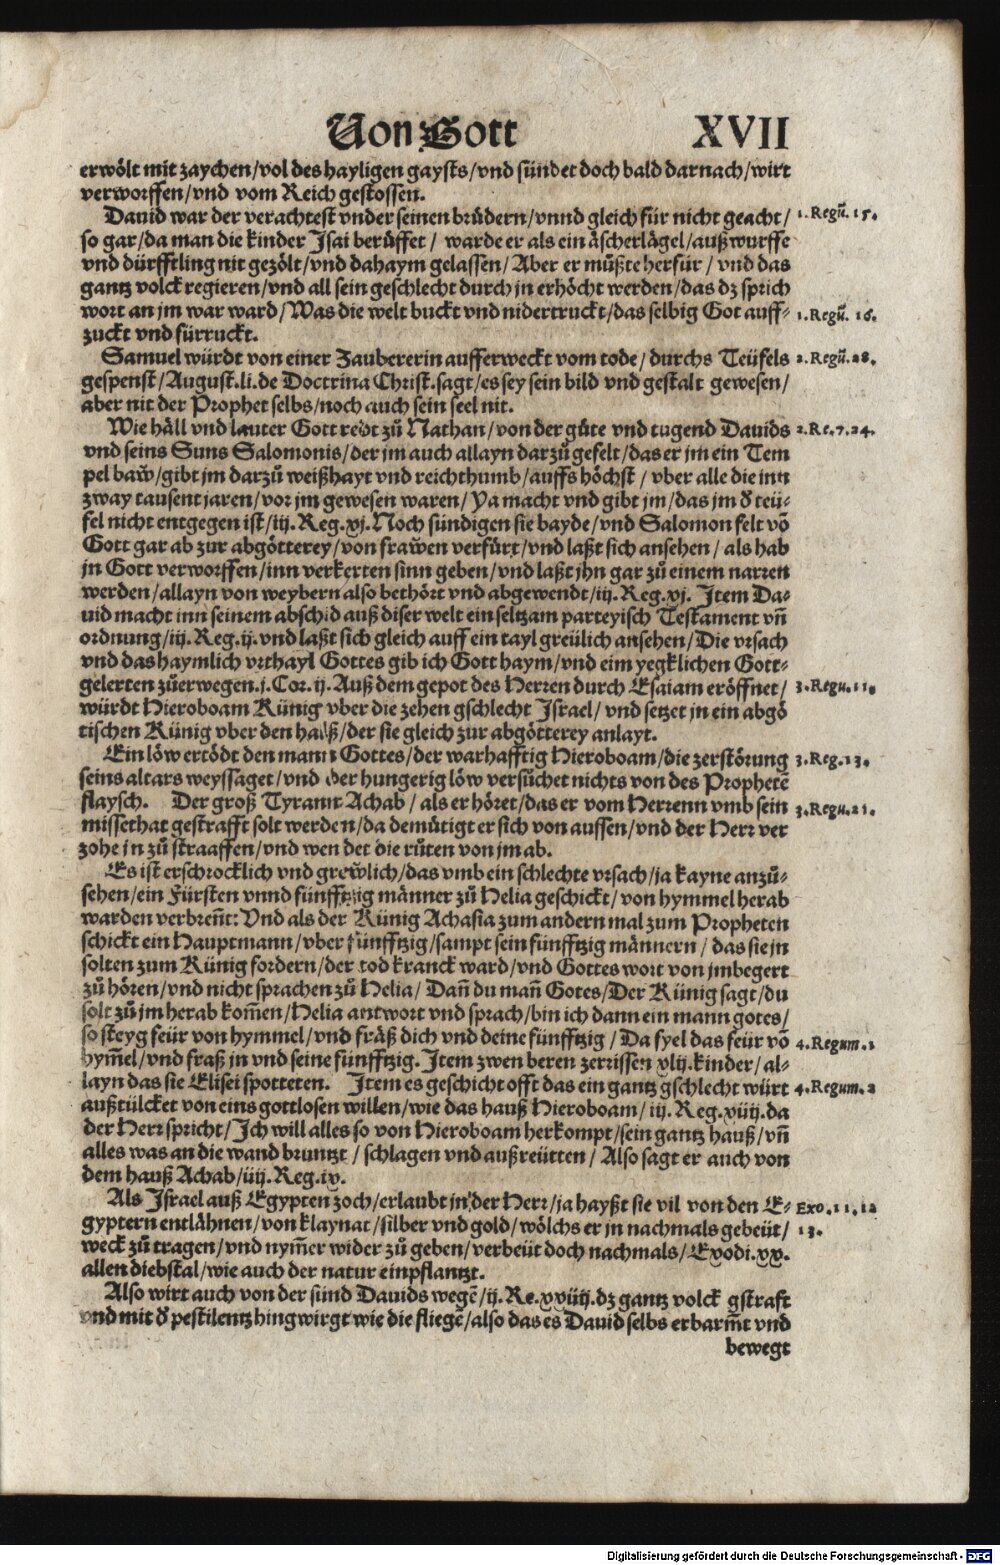 Von Gott XVII
erwölt mit zaychen/vol des hayligen gaysts/vnd sündet doch bald darnach/wirt
verworffen/vnd vom Reich gestossen.
Dauid war der verachtest vnder seinen brüdern/vnnd gleich für nicht geacht/ 1. Regū. 15.
so gar/da man die kinder Isai berüffet/ warde er als ein äscherlägel/außwurffe
vnd dürfftling nit gezölt/vnd dahaym gelassen/Aber er müßte herfür/vnd das
gantz volck regieren/vnd all sein geschlecht durch jn erhöcht werden/das dz sprich
wort an jm war ward/Was die welt buckt vnd nidertruckt/das selbig Got auff- 1. Regū. 16.
zuckt vnd fürruckt.
Samuel würdt von einer Zaubererin aufferweckt vom tode/durchs Teüfels 2. Regū. 28.
gespenst/August.li.de Doctrina Christ.sagt/es sey sein bild vnd gestalt gewesen/
aber nit der Prophet selbs/noch auch sein seel nit.
Wie häll vnd lauter Gott redt zů Nathan/von der güte vnd tugend Dauids 2. Re. 7. 24.
vnd seins Suns Salomonis/der jm auch allayn darzů gefelt/das er jm ein Tem
pel baw/gibt jm darzů weißhayt vnd reichthumb/auffs höchst/vber alle die inn
zway tausent jaren/vor jm gewesen waren/Ya macht vnd gibt jm/das jm d teü-
fel nicht entgegen ist/iij.Reg.xj.Noch sündigen sie bayde/vnd Salomon felt võ
Gott gar ab zur abgötterey/von frawen verfürt/vnd laßt sich ansehen/als hab
jn Gott verworffen/inn verkerten sinn geben/vnd laßt jhn gar zů einem narren
werden/allayn von weybern also bethört vnd abgewendt/iij.Reg.xj. Item Da-
uid macht inn seinem abschid auß diser welt ein seltzam parteyisch Testament vñ
ordnung/iij.Reg.ij.vnd laßt sich gleich auff ein tayl greülich ansehen/Die vrsach
vnd das haymlich vrthayl Gottes gib ich Gott haym/vnd eim yegklichen Gott-
gelerten zůerwegen.j.Cor.ij.Auß dem gepot des Herren durch Esaiam eröffnet/ 3. Regu. 11.
würdt Hieroboam Künig vber die zehen gschlecht Israel/vnd setzet jn ein abgö
tischen Künig vber den halß/der sie gleich zur abgötterey anlayt.
Ein löw ertödt den mann Gottes/der warhafftig Hieroboam/die zerstörung 3. Reg. 13.
seins altars weyssaget/vnd der hungerig löw versůchet nichts von des Prophetē
flaysch. Der groß Tyrann Achab/als er höret/das er vom Herrenn vmb sein 3. Regu. 21.
missethat gestrafft solt werden/da demütigt er sich von aussen/vnd der Herr ver
zohe jn zů straaffen/vnd wendet die růten von jm ab.
Es ist erschrocklich vnd grewlich/das vmb ein schlechte vrsach/ja kayne anzů-
sehen/ein Fürsten vnnd fünfftzig männer zů Helia geschickt/von hymmel herab
warden verbreñt: Vnd als der Künig Achasia zum andern mal zum Propheten
schickt ein Hauptmann/vber fünfftzig/sampt sein fünfftzig männern/das sie jn
solten zum Künig fordern/der tod kranck ward/vnd Gottes wort von jm begert
zů hören/vnd nicht sprachen zů Helia/Dañ du mañ Gotes/Der Künig sagt/du
solt zů jm herab komen/Helia antwort vnd sprach/bin ich dann ein mann gotes/
so steyg feür von hymmel/vnd fräß dich vnd deine fünfftzig/Da fyel das feür võ 4. Regum. 1
hym̃el/vnd fraß jn vnd seine fünfftzig. Item zwen beren zerrissen xlij.kinder/al-
layn das sie Elisei spotteten. Item es geschicht offt das ein gantz gschlecht würt 4. Regum. 2
außtülcket von eins gottlosen willen/wie das hauß Hieroboam/iij.Reg.xiiij.da
der Herr spricht/Ich will alles so von Hieroboam herkompt/sein gantz hauß/vñ
alles was an die wand bruntzt/schlagen vnd außreütten/Also sagt er auch von
dem hauß Achab/iiij.Reg.ix.
Als Israel auß Egypten zoch/erlaubt jn der Herr/ja hayßt sie vil von den E- Exo. 11. 12
gyptern entlähnen/von klaynat/silber vnd gold/wölchs er jn nachmals gebeüt/ 13.
weck zů tragen/vnd nym̃er wider zů geben/verbeüt doch nachmals/Exodi.xx.
allen diebstal/wie auch der natur einpflantzt.
Also wirt auch von der sünd Dauids wegē/ij.Re.xxiiij.dz gantz volck gstraft
vnd mit d pestilentz hingwirgt wie die fliegē/also das es Dauid selbs erbarm̃t vnd
bewegt
Digitalisierung gefördert durch die Deutsche Forschungsgemeinschaft - DFG